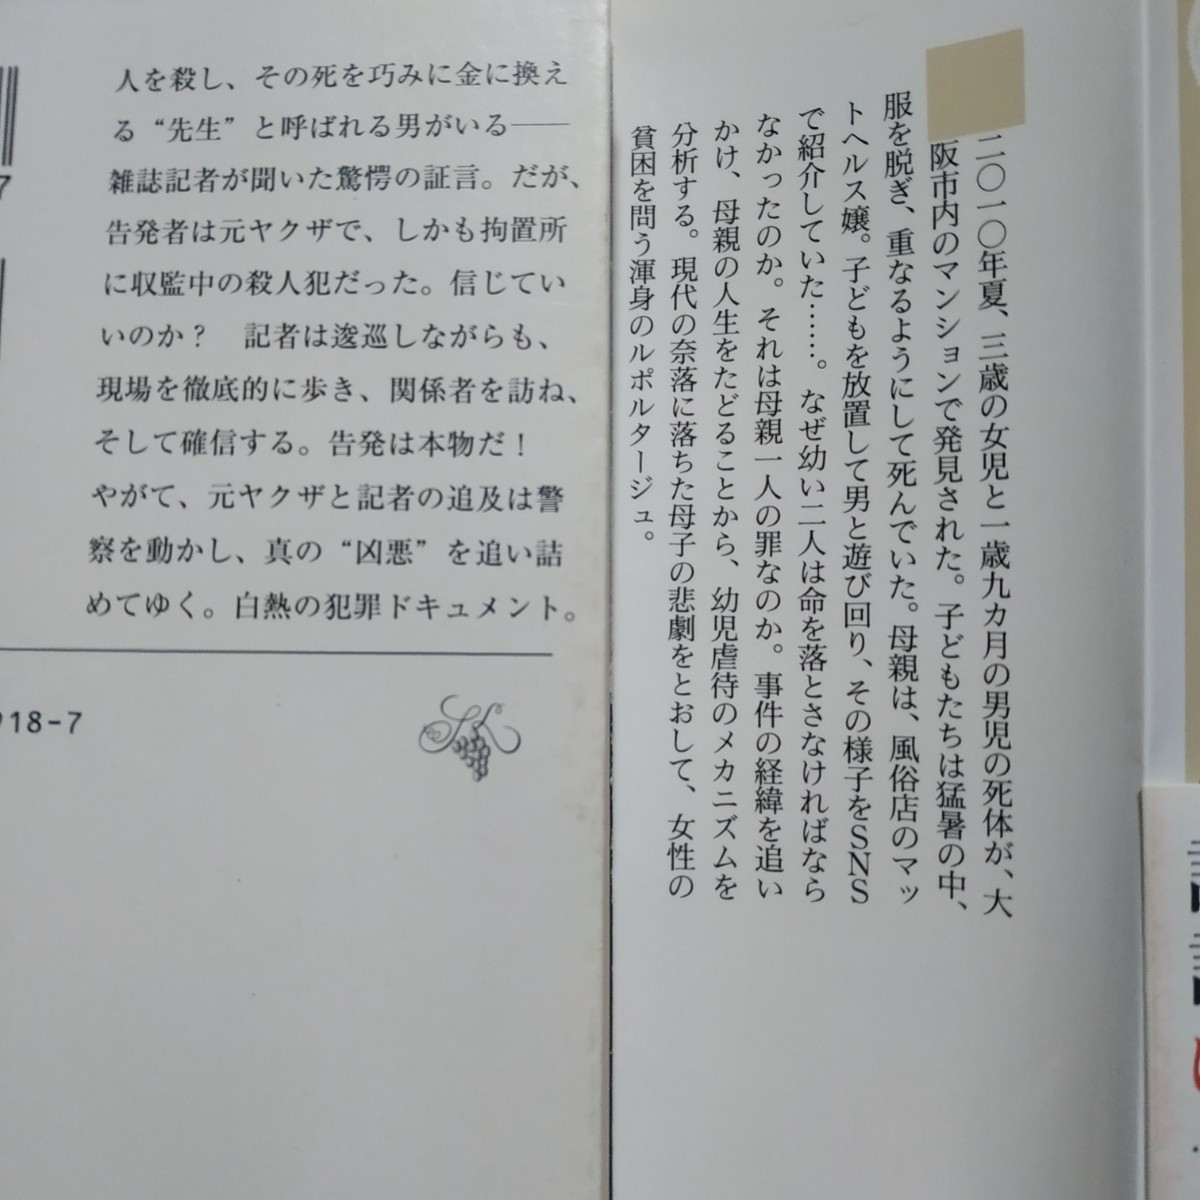 人を殺し、その死を巧みに金に換え
る“先生”と呼ばれる男がいる――
雑誌記者が聞いた驚愕の証言。だが、
告発者は元ヤクザで、しかも拘置所
に収監中の殺人犯だった。信じてい
いのか？　記者は逡巡しながらも、
現場を徹底的に歩き、関係者を訪ね、
そして確信する。告発は本物だ！
やがて、元ヤクザと記者の追及は警
察を動かし、真の“凶悪”を追い詰
めてゆく。白熱の犯罪ドキュメント。
18-7
7
二〇一〇年夏、三歳の女児と一歳九カ月の男児の死体が、大
阪市内のマンションで発見された。子どもたちは猛暑の中、
服を脱ぎ、重なるようにして死んでいた。母親は、風俗店のマッ
トヘルス嬢。子どもを放置して男と遊び回り、その様子をSNS
で紹介していた……。なぜ幼い二人は命を落とさなければなら
なかったのか。それは母親一人の罪なのか。事件の経緯を追い
かけ、母親の人生をたどることから、幼児虐待のメカニズムを
分析する。現代の奈落に落ちた母子の悲劇をとおして、女性の
貧困を問う渾身のルポルタージュ。